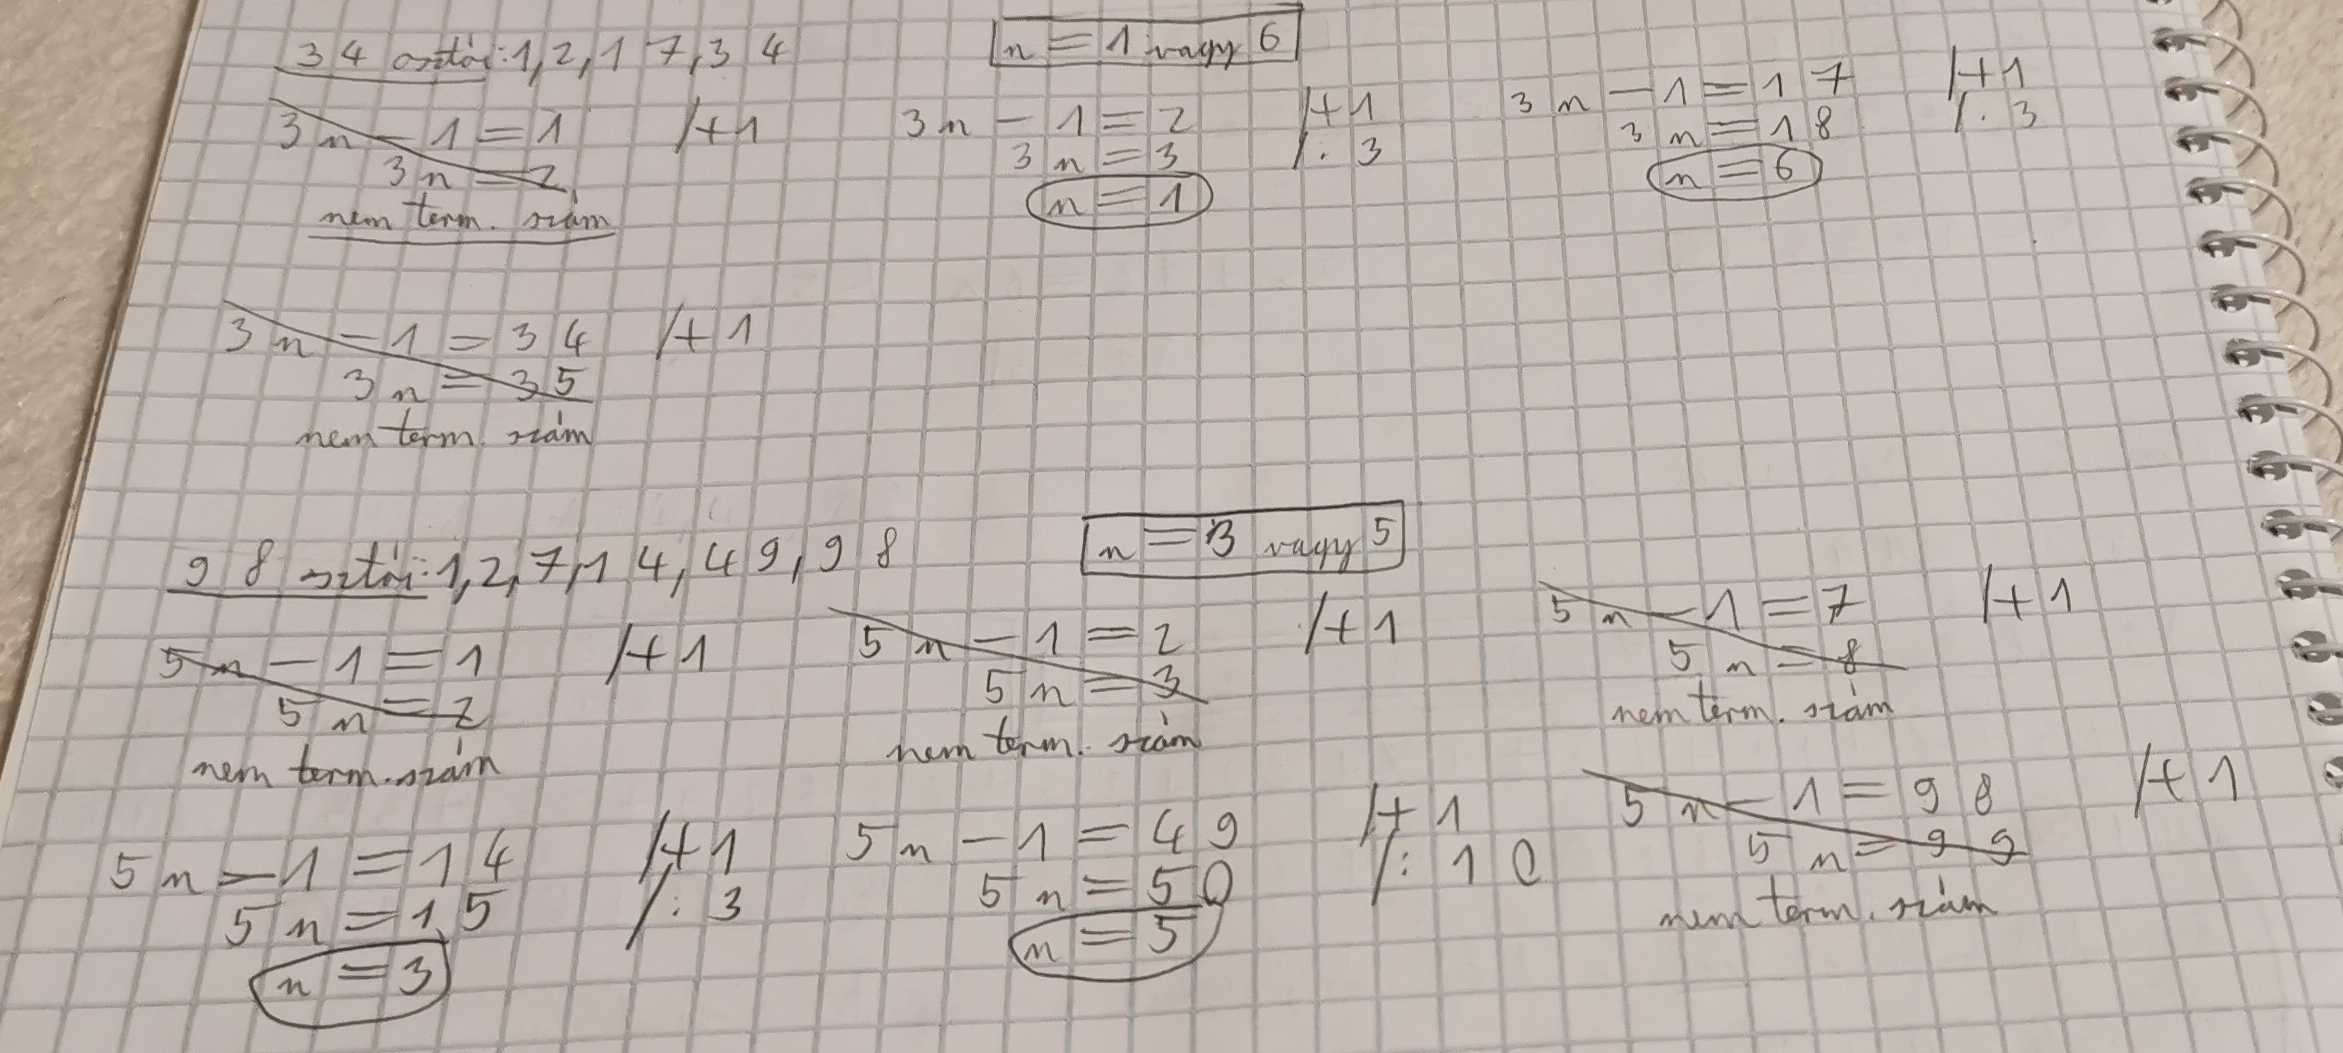 34 osztói: 1, 2, 17, 34
n = 1 vagy 6
3n - 1 = 1 /+1
3n = 2
nem term. szám
3n - 1 = 2 /+1
3n = 3 /: 3
n = 1
3n - 1 = 17 /+1
3n = 18 /: 3
n = 6
3n - 1 = 34 /+1
3n = 35
nem term. szám
98 osztói: 1, 2, 7, 14, 49, 98
n = 3 vagy 5
5n - 1 = 1 /+1
5n = 2
nem term. szám
5n - 1 = 2 /+1
5n = 3
nem term. szám
5n - 1 = 7 /+1
5n = 8
nem term. szám
5n - 1 = 14 /+1
5n = 15 /: 3
n = 3
5n - 1 = 49 /+1
5n = 50 /: 10
n = 5
5n - 1 = 98 /+1
5n = 99
nem term. szám